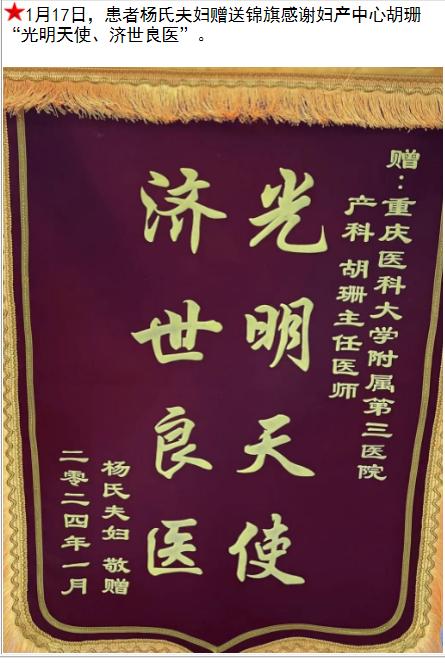 ★1月17日，患者杨氏夫妇赠送锦旗感谢妇产中心胡珊
“光明天使、济世良医”。
赠：重庆医科大学附属第三医院
产科 胡珊主任医师
光明天使
济世良医
杨氏夫妇 敬赠
二零二四年一月